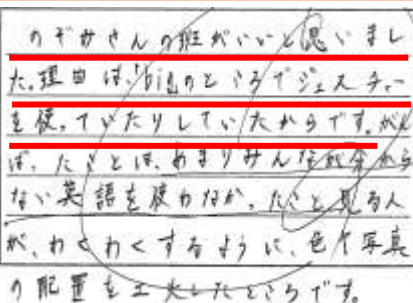 のぞみさんの班がいいと思いまし
た。理由は、「bigのところでジェスチャー
を使っていたりしていたからです。がん
ば、たことは、あまりみんなが分から
ない英語を使わなか、たこと見る人
が、わくわくするように、色や写真
の配置を工夫したところです。